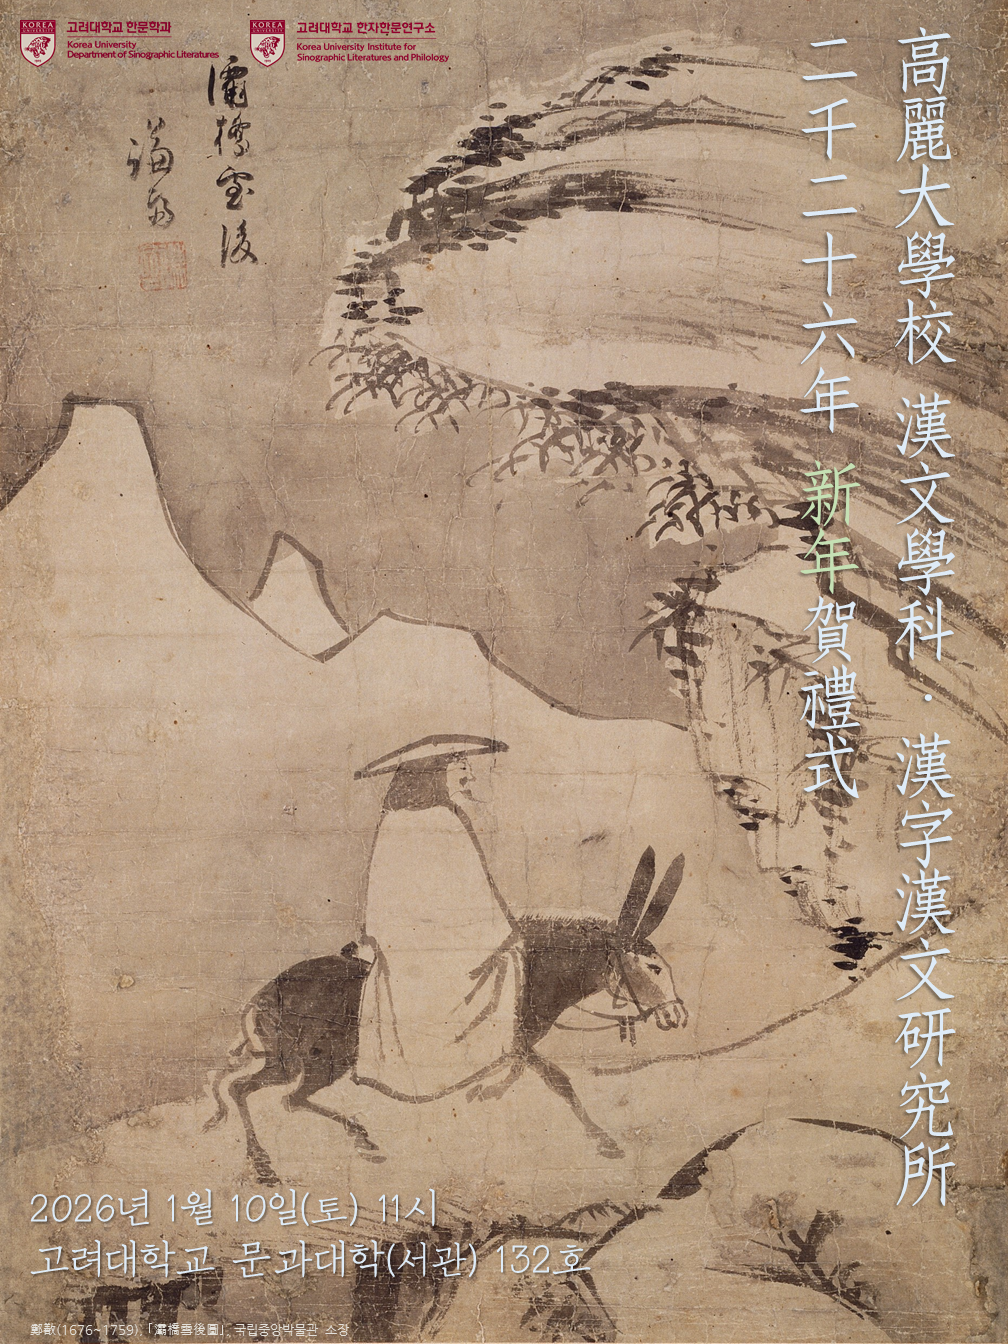 고려대학교 한문학과
Korea University
Department of Sinographic Literatures
고려대학교 한자한문연구소
Korea University Institute for
Sinographic Literatures and Philology
KOREA
KOREA
高麗大學校 漢文學科 · 漢字漢文研究所
二千二十六年 新年賀禮式
灞橋雪後
謙齋
2026년 1월 10일(토) 11시
고려대학교 문과대학(서관) 132호
鄭敾(1676~1759), 「灞橋雪後圖」, 국립중앙박물관 소장